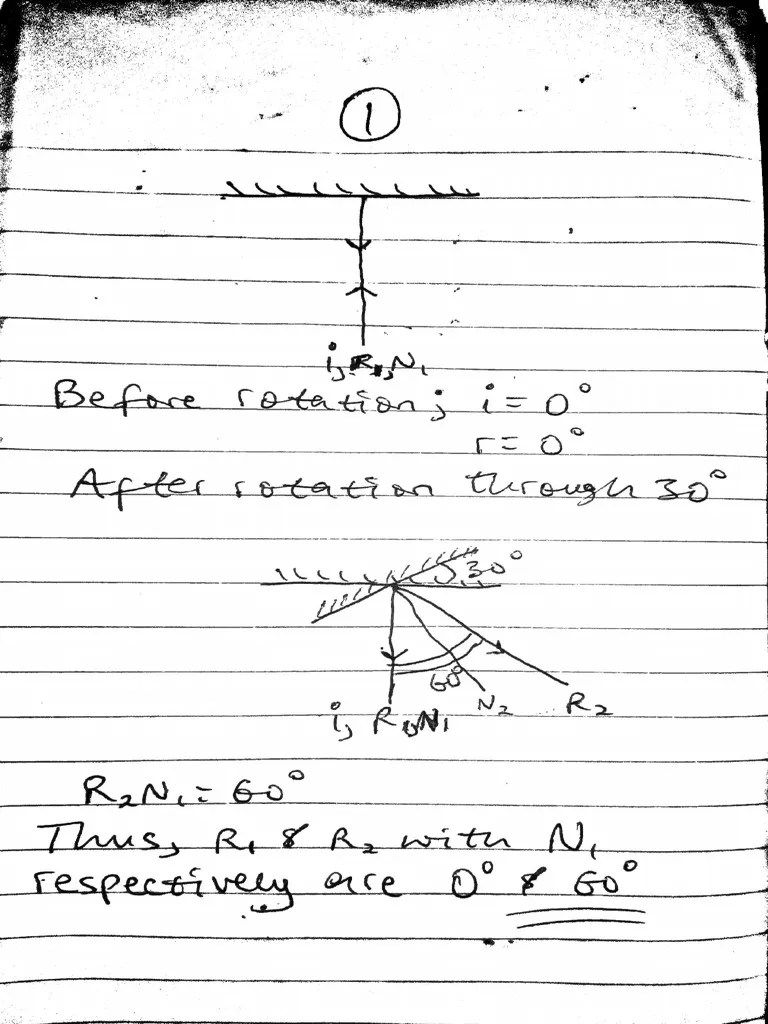 1
i, R₁, N₁
Before rotation; i = 0°
r = 0°
After rotation through 30°
30°
60°
N₂
R₂
i, R₁, N₁
R₂N₁ = 60°
Thus, R₁ & R₂ with N₁
respectively are 0° & 60°